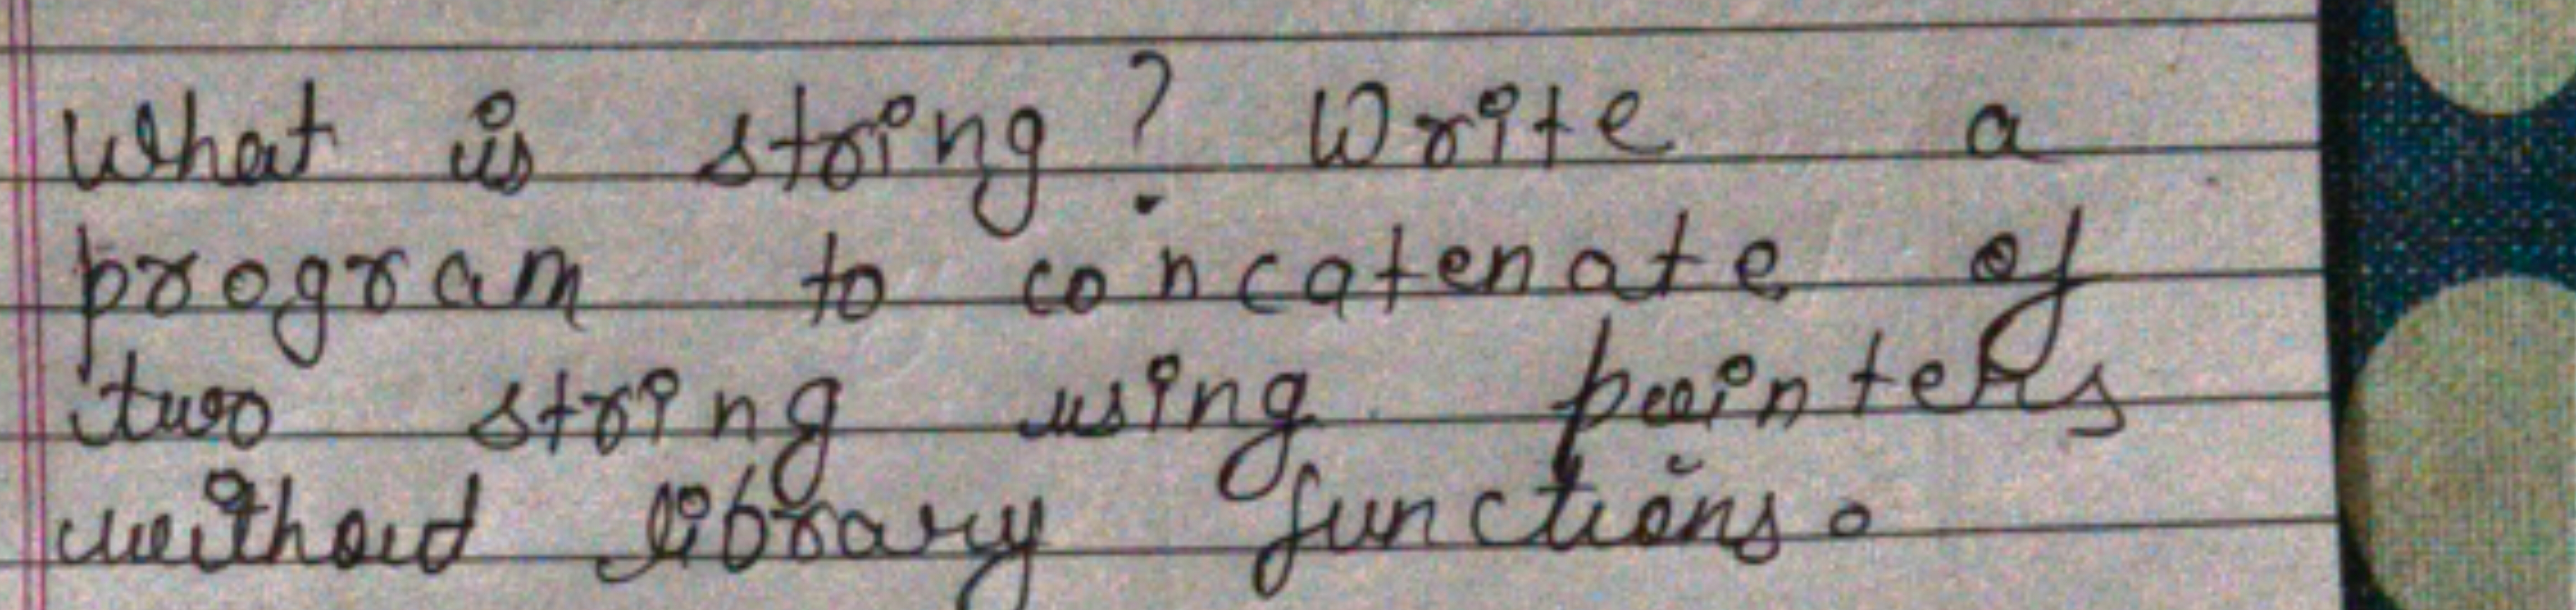 What is string? Write a
program to concatenate of
two string using pointers
withoud library functions.